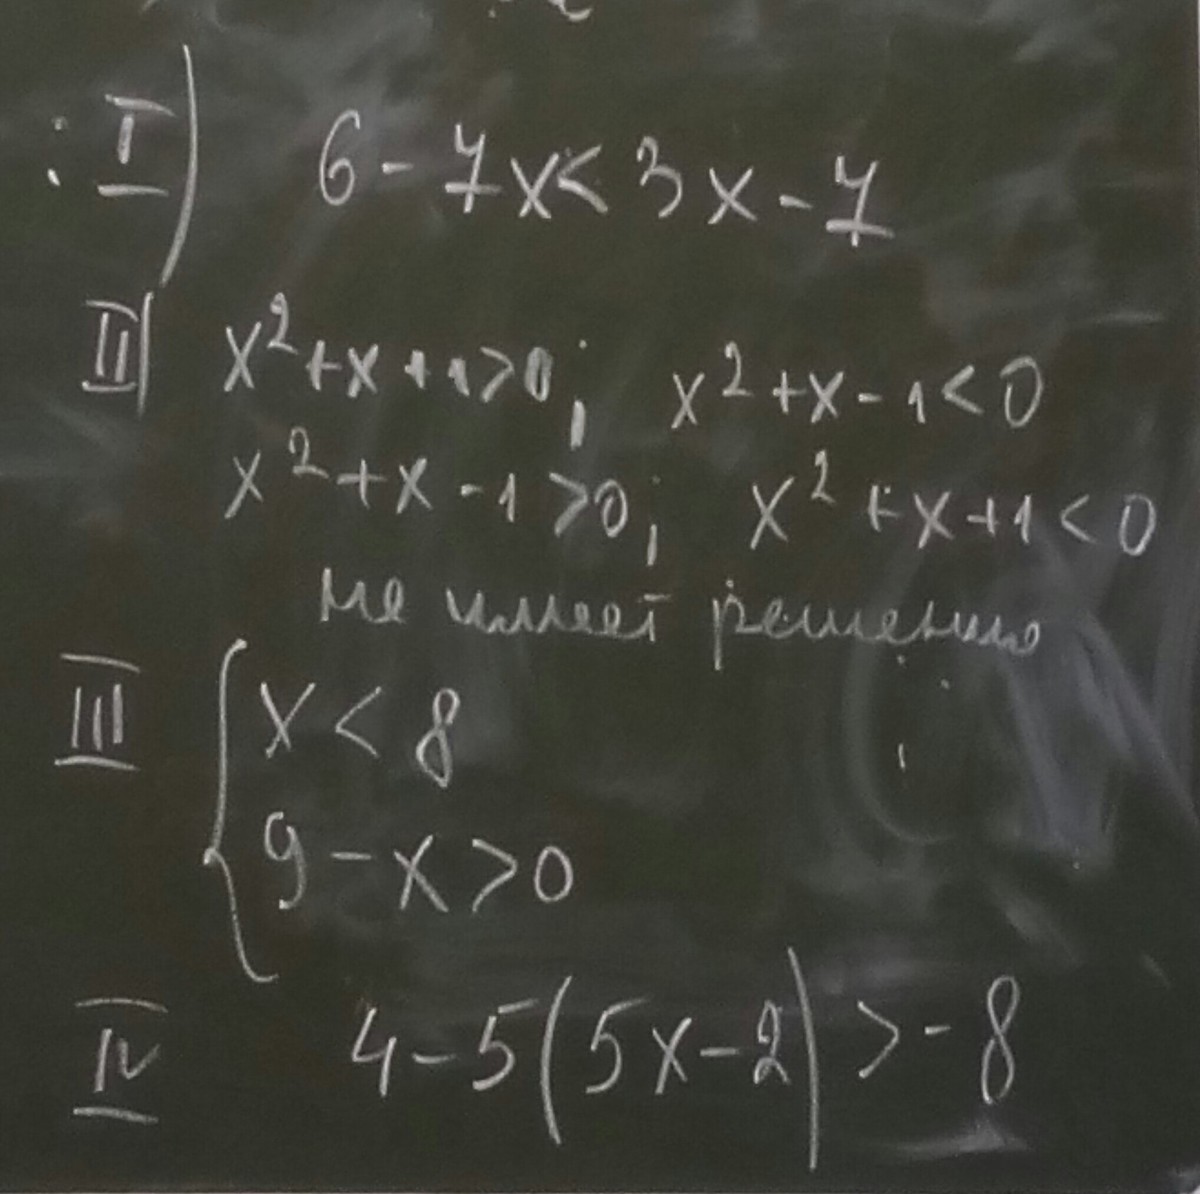 I) 6 - 7x < 3x - 7
II) x² + x + 1 > 0; x² + x - 1 < 0
x² + x - 1 > 0; x² + x + 1 < 0
не имеет решения
III { x < 8
9 - x > 0
IV 4 - 5(5x - 2) > -8